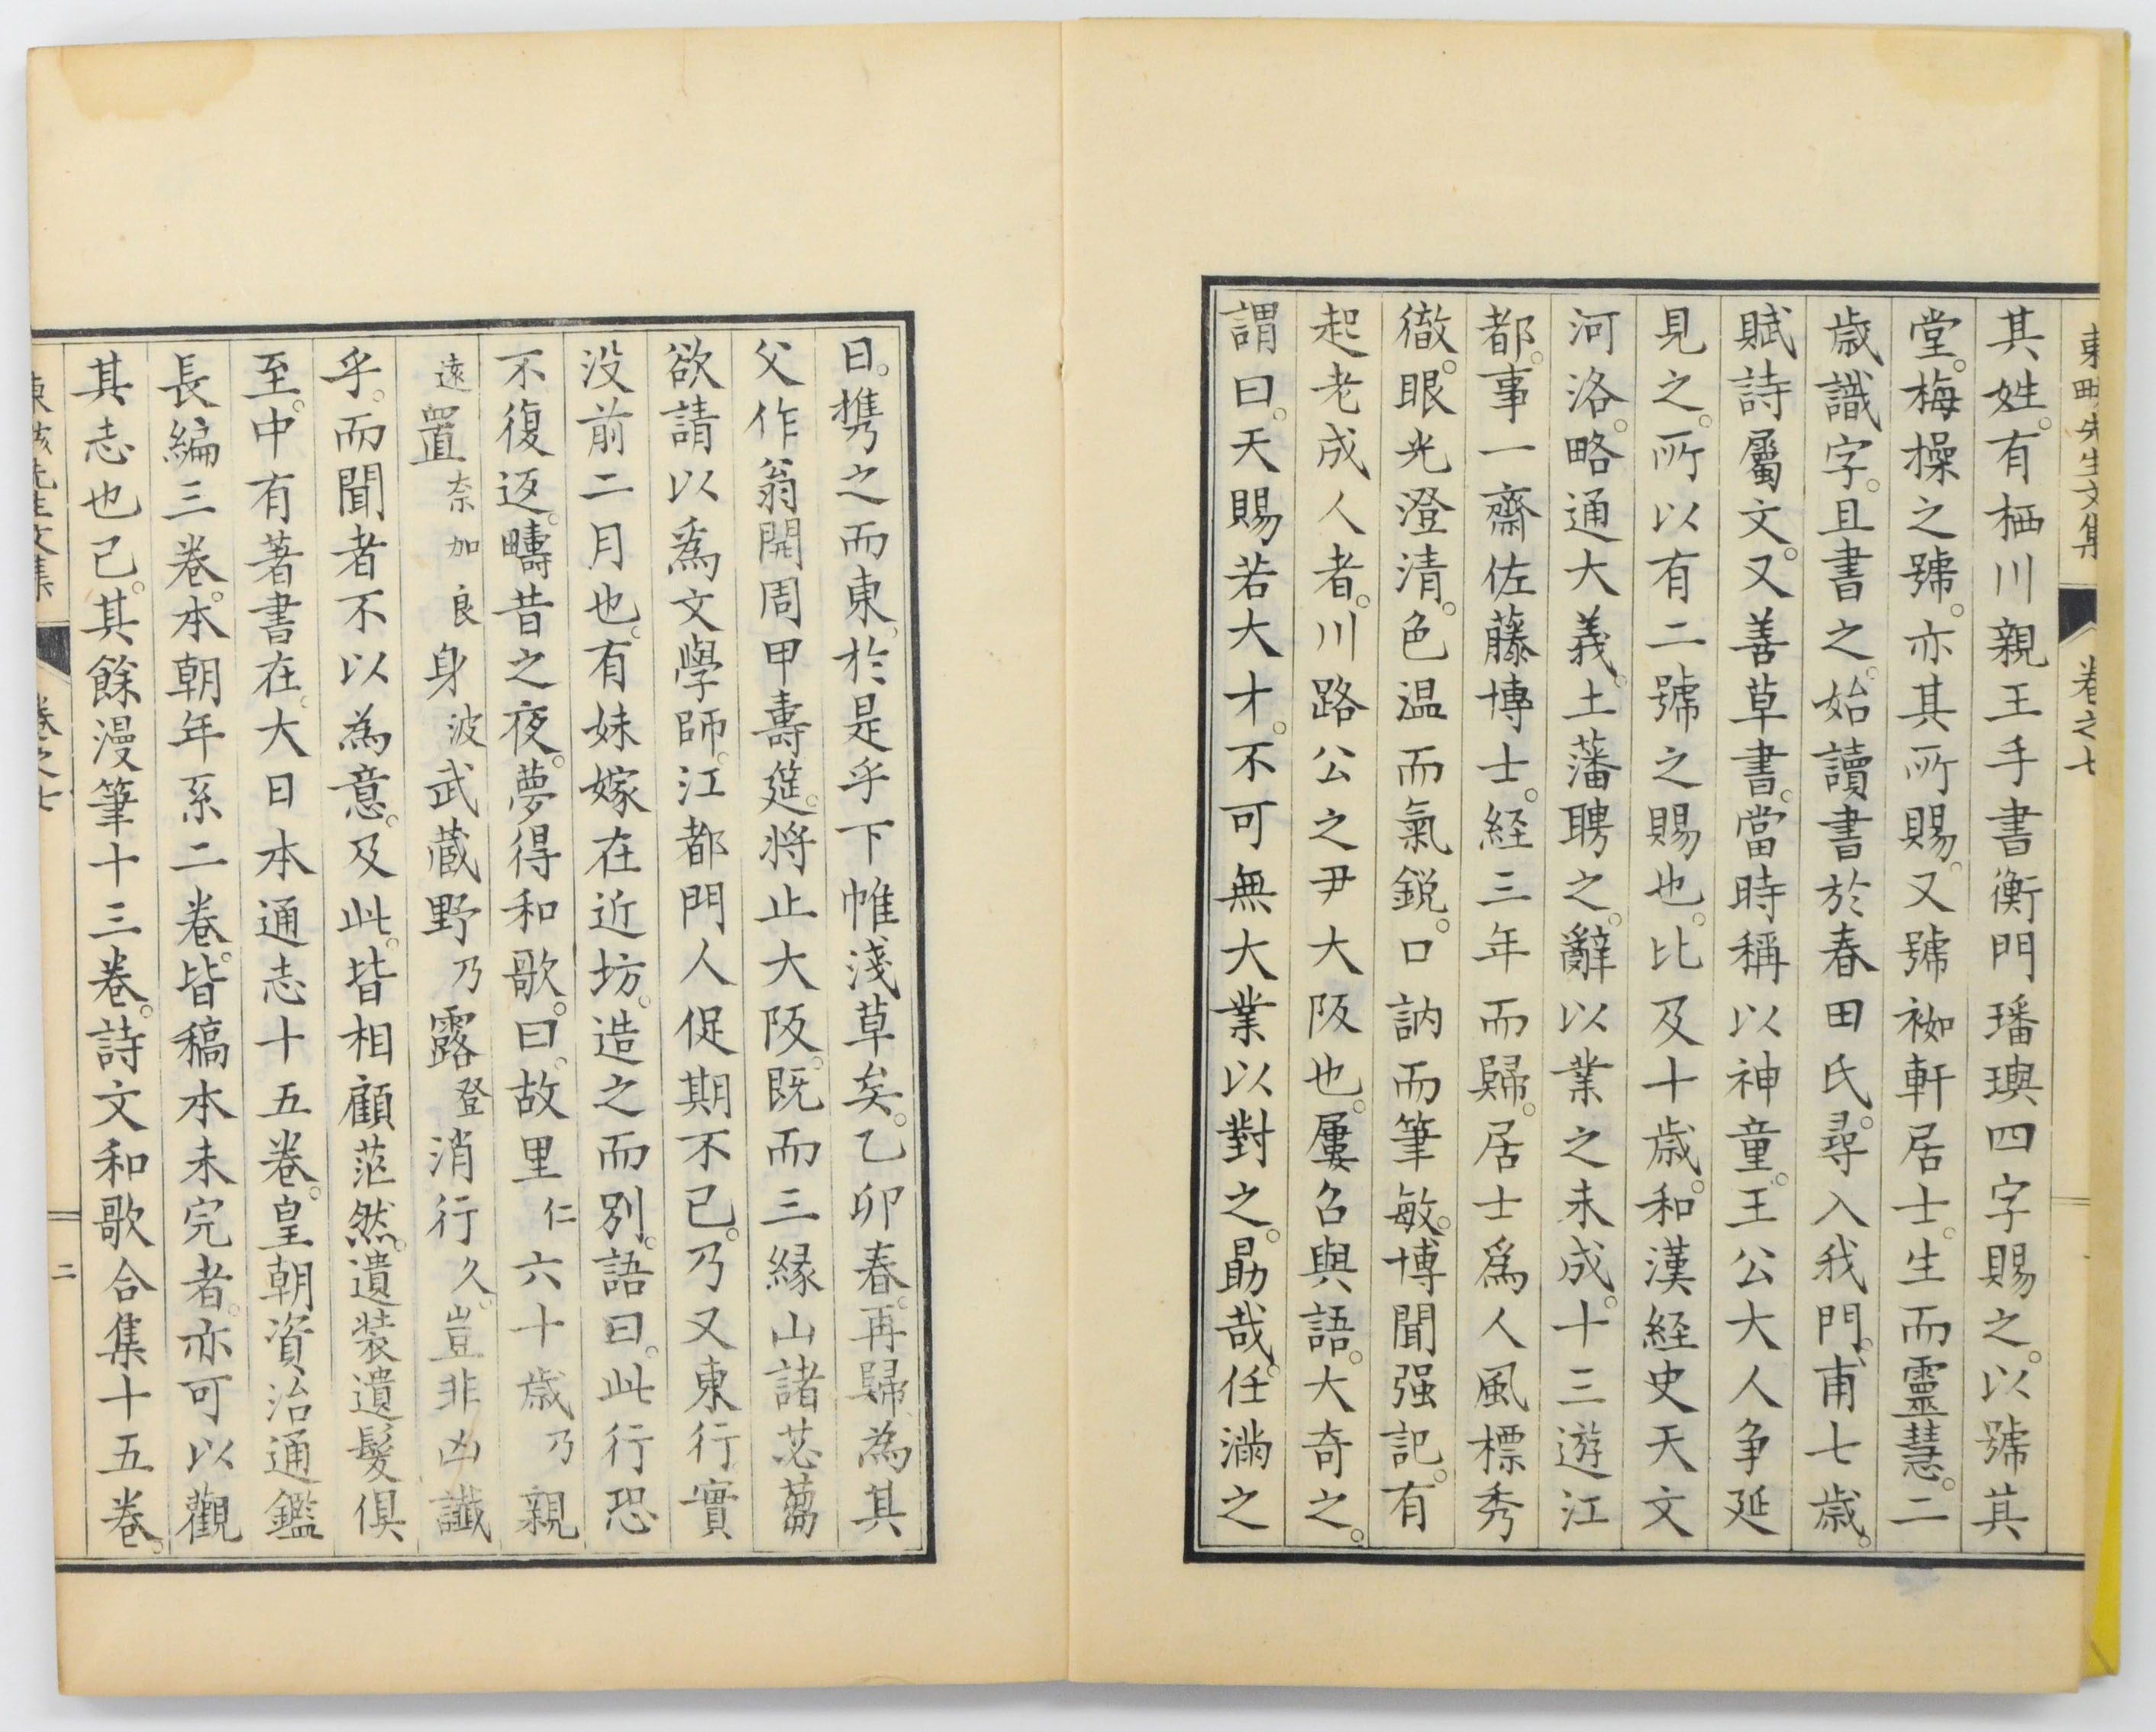 先生文集 卷之七
其姓。有栖川親王手書衡門璠璵四字賜之。以號其
堂。梅操之號。亦其所賜。又號袽軒居士。生而靈慧。二
歳識字。且書之。始讀書於春田氏。尋入我門。甫七歳。
賦詩屬文。又善草書。當時稱以神童。王公大人争延
見之。所以有二號之賜也。比及十歳。和漢経史天文
河洛。略通大義。土藩聘之。辭以業之未成。十三遊江
都。事一齋佐藤博士。経三年而歸。居士爲人風標秀
徹。眼光澄清。色温而氣鋭。口訥而筆敏。博聞强記。有
起老成人者。川路公之尹大阪也。屢召與語。大奇之。
謂曰。天賜若大才。不可無大業以對之。勗哉。任滿之
日。携之而東。於是乎下帷淺草矣。乙卯春。再歸為其
父作翁開周甲壽筵。将止大阪。既而三縁山諸苾蒭
欲請以爲文學師。江都門人促期不已。乃又東行。實
没前二月也。有妹嫁在近坊。造之而別。語曰。此行恐
不復返。疇昔之夜。夢得和歌。曰。故里仁六十歳乃親
遠置奈加良身波武蔵野乃露登消行久。豈非凶讖
乎。而聞者不以為意。及此。皆相顧茫然。遺装遺髮俱
至。中有著書在。大日本通志十五卷。皇朝資治通鑑
長編三卷。本朝年系二卷。皆稿本未完者。亦可以觀
其志也已。其餘漫筆十三卷。詩文和歌合集十五卷。
先生文集 卷之七 二